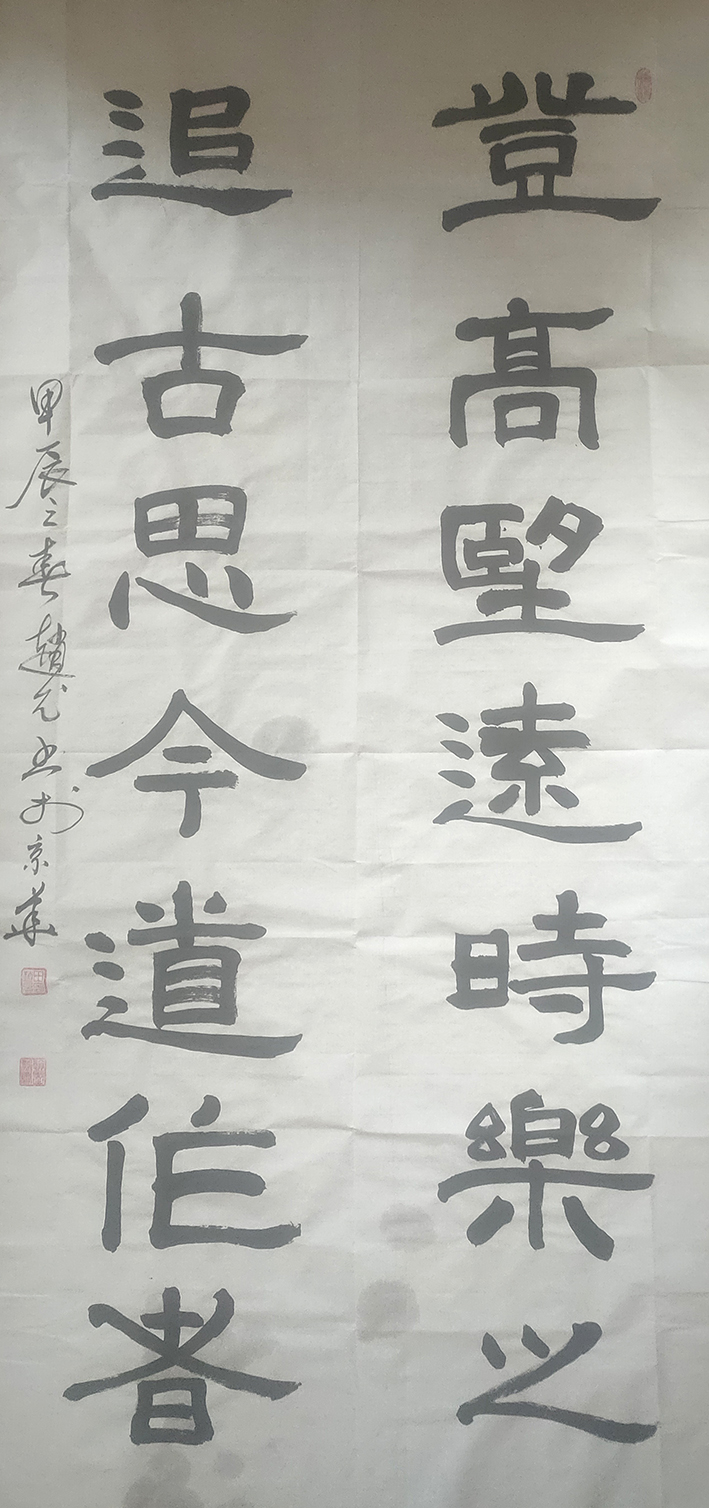 登高望遠時樂之
追古思今道作者
甲辰之春趙元书於京華